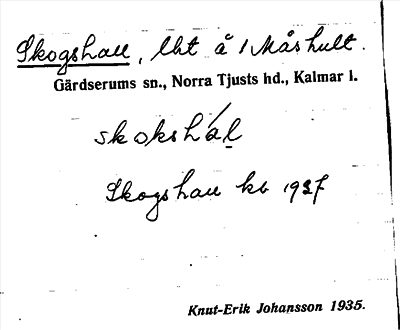 Skogshall, lht å 1 Måshult.
Gärdserums sn., Norra Tjusts hd., Kalmar l.
skoksha̍l
Skogshall kb 1927
Knut-Erik Johansson 1935.